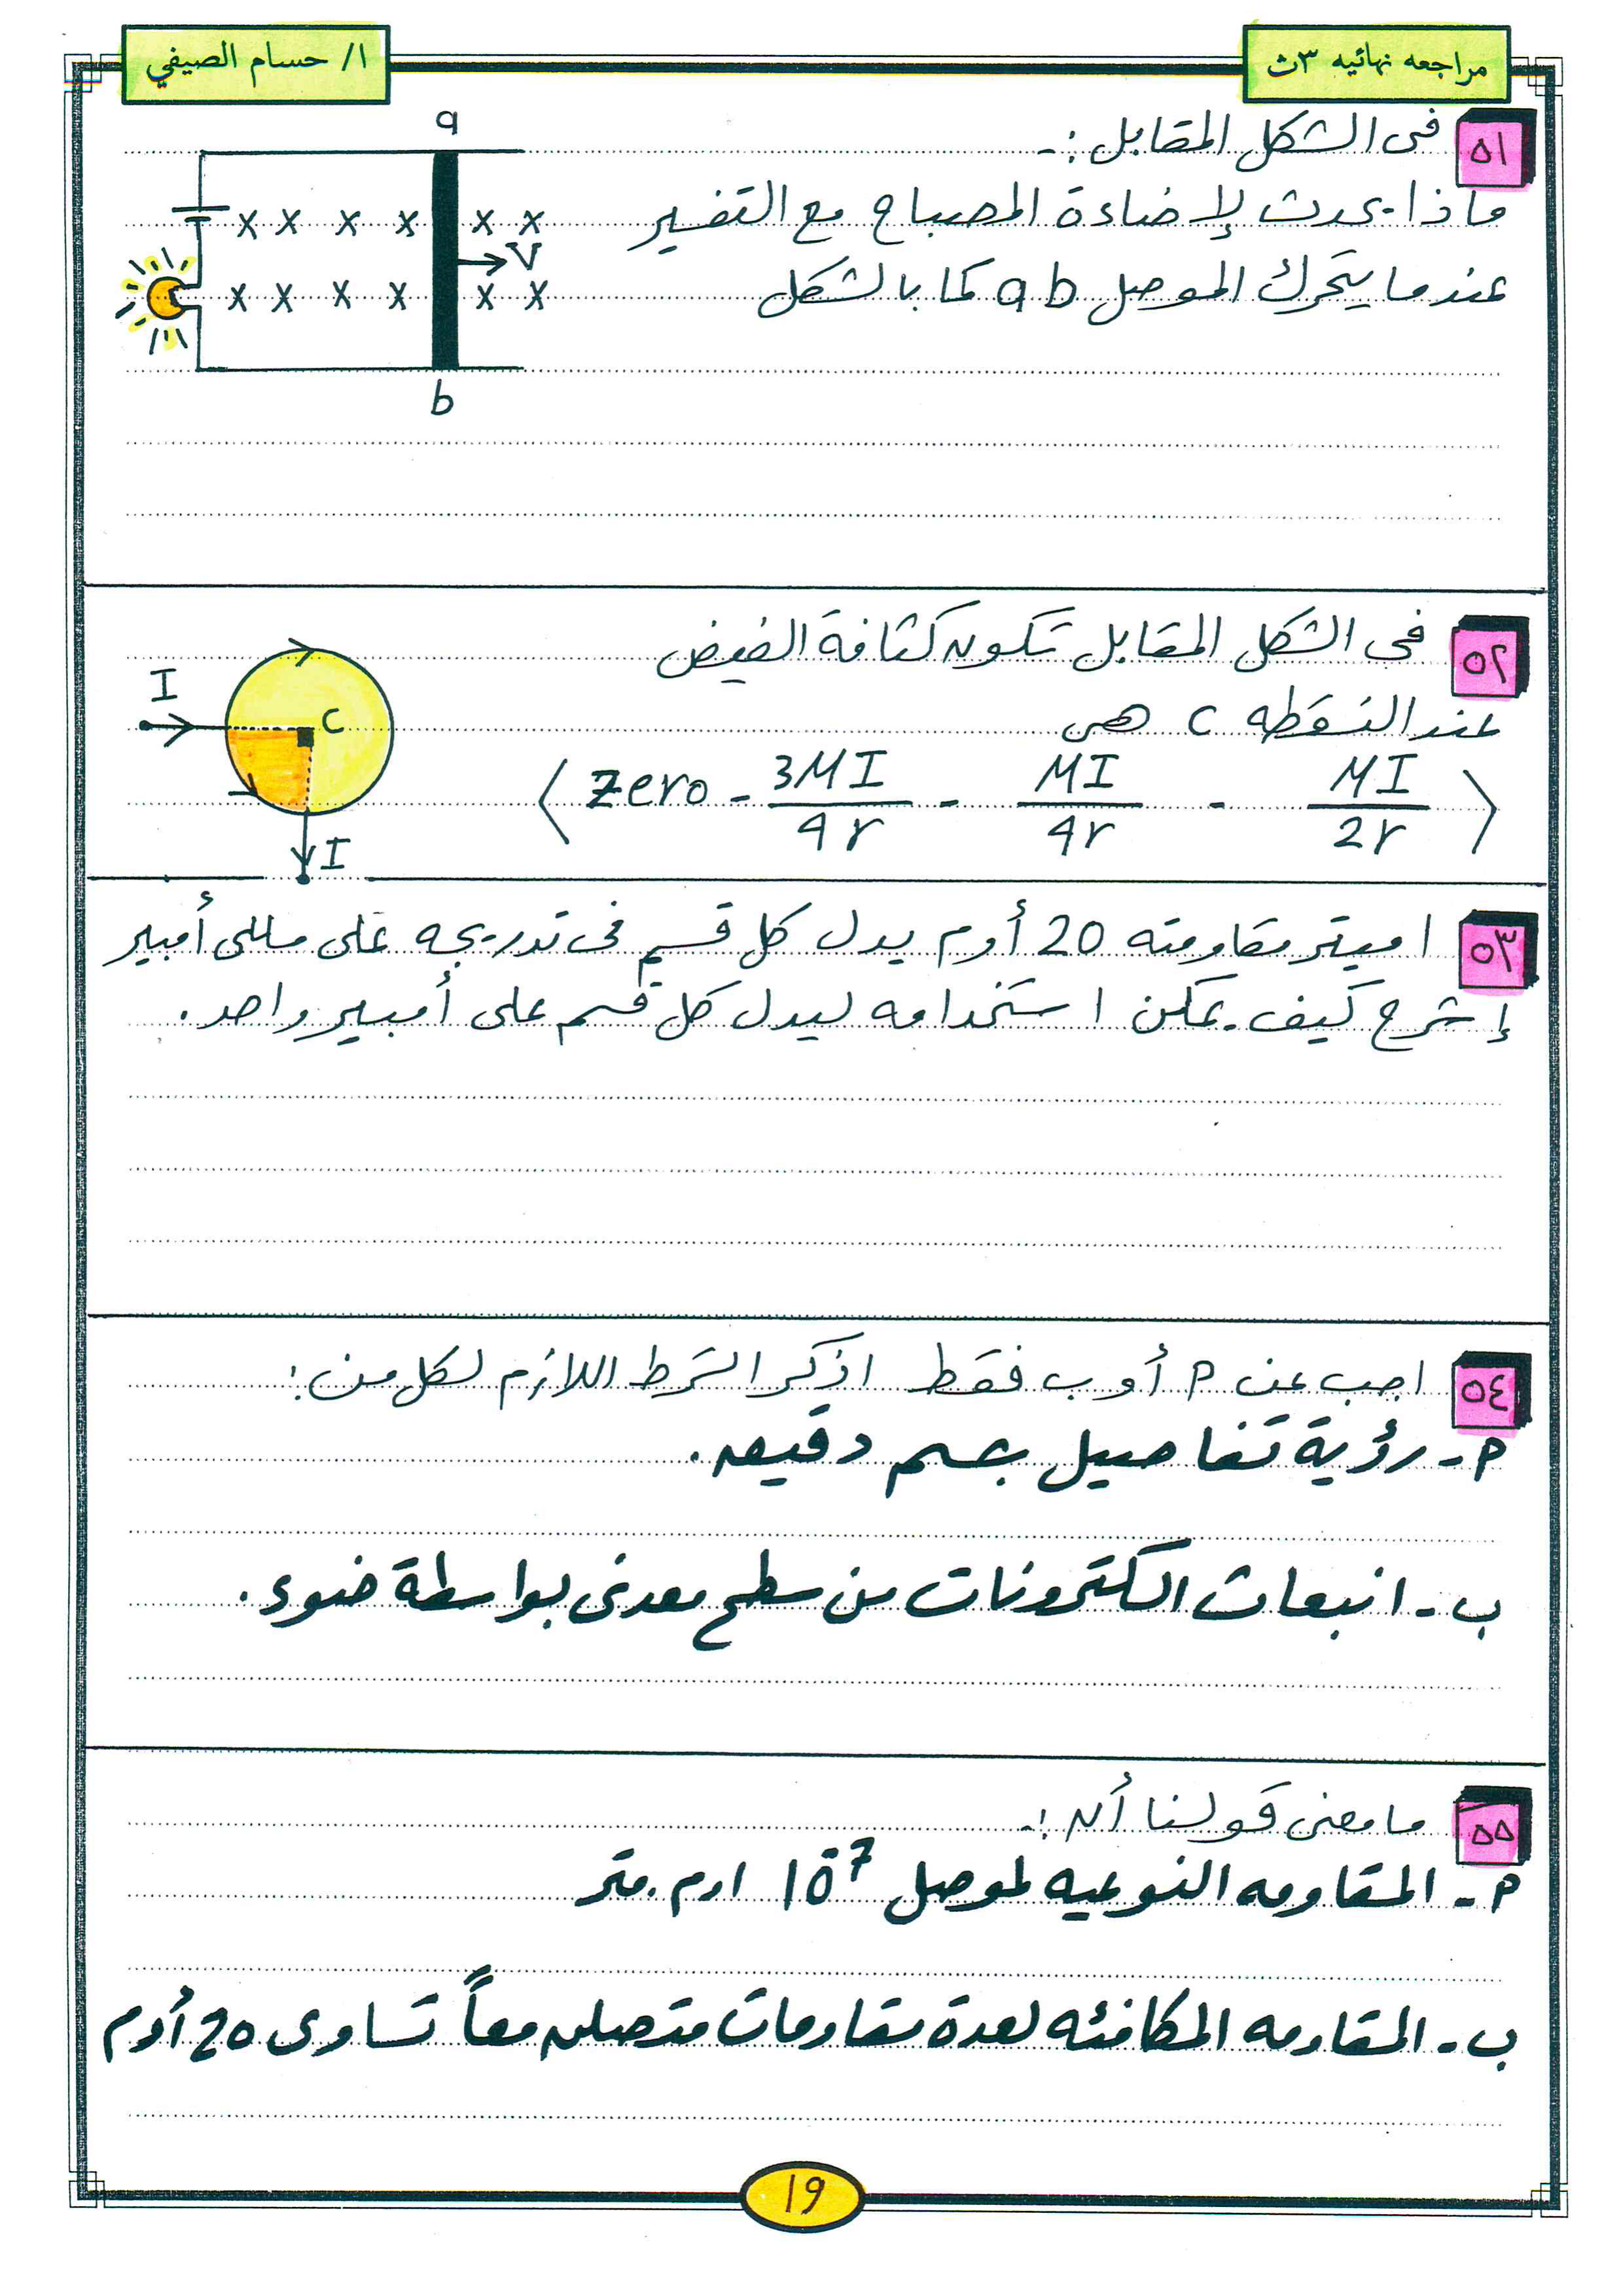 مراجعه نهائيه ٣ث
ا/ حسام الصيفي
٥١ في الشكل المقابل :-
ماذا يحدث لإضاءة المصباح مع التفسير
عندما يتحرك الموصل ab كما بالشكل
a
× × × × × ×
V
× × × × × ×
b
٥٢ في الشكل المقابل تكون كثافة الفيض
عند النقطه c هي
( MI/2r - MI/4r - 3MI/4r - Zero )
I
c
I
٥٣ اميتر مقاومته 20 أوم يدل كل قسم في تدريجه على مللى أمبير
إشرح كيف يمكن استخدامه ليدل كل قسم على أمبير واحد .
٥٤ اجب عن م أو ب فقط اذكر الشرط اللازم لكل من :
م - رؤية تفاصيل جسم دقيق .
ب - انبعاث الكترونات من سطح معدني بواسطة ضوء .
٥٥ ما معنى قولنا أن :-
م - المقاومه النوعيه لموصل 10⁻⁷ اوم . متر
ب - المقاومه المكافئه لعدة مقاومات متصله معاً تساوى 20 أوم
١٩